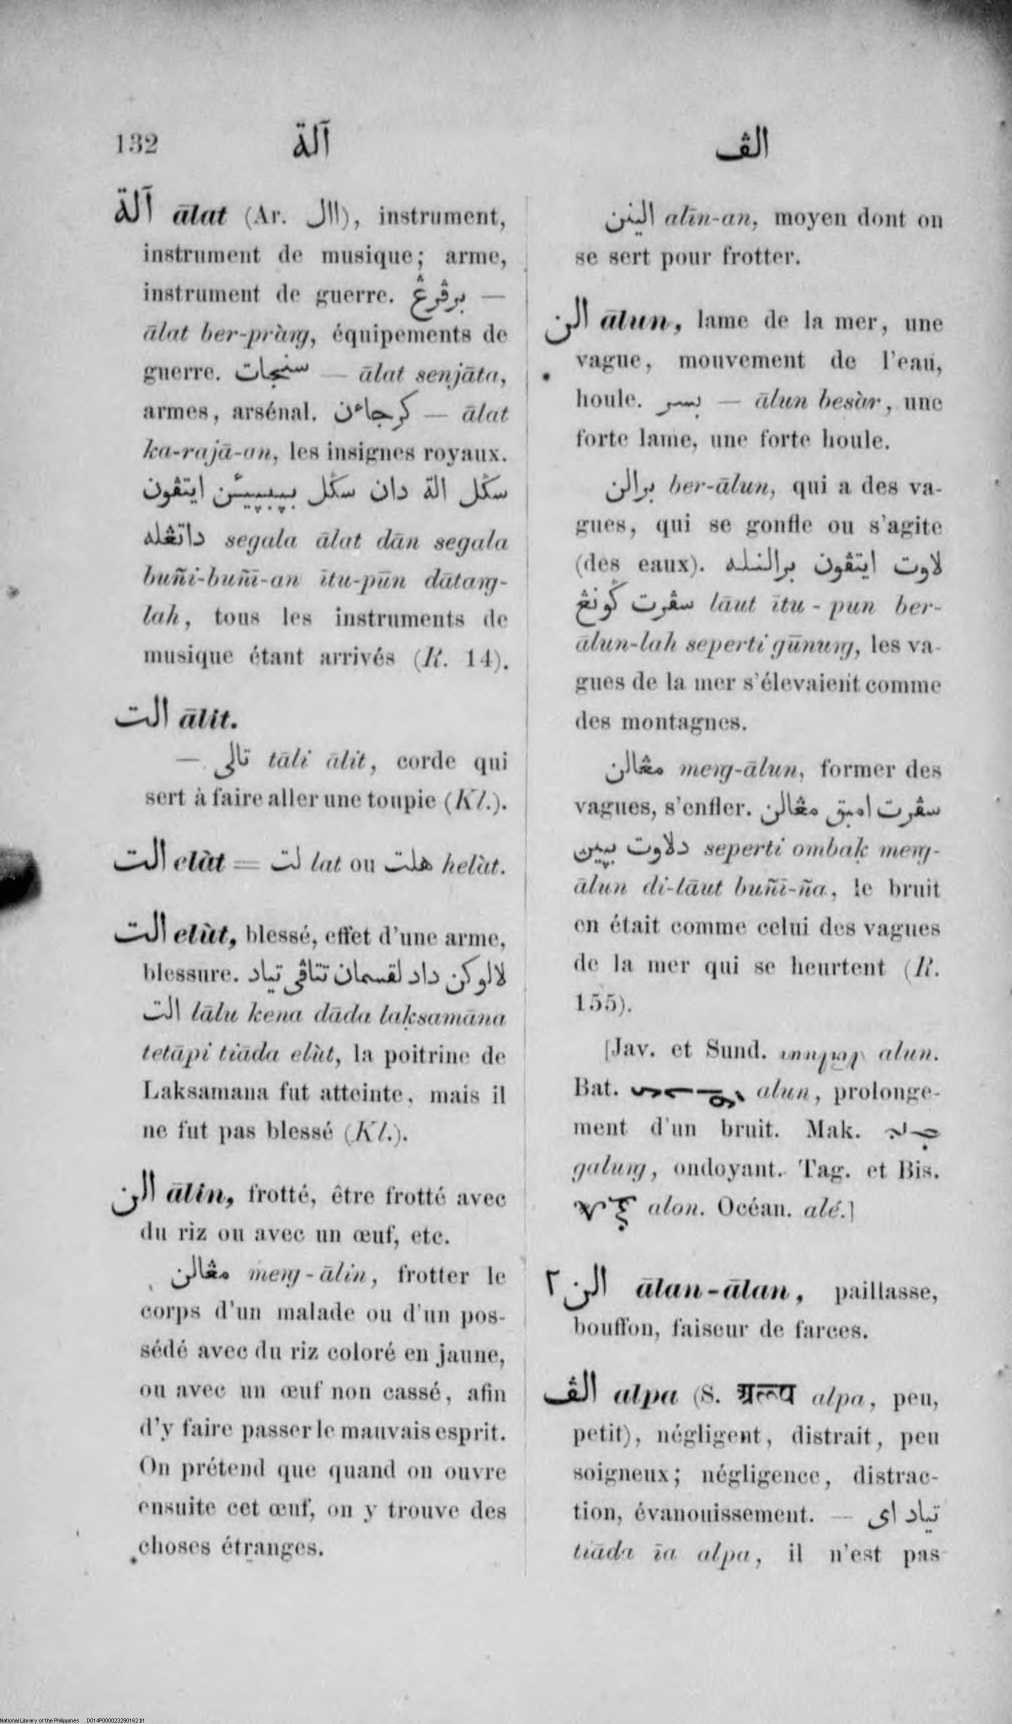 132
آلة
الڤ
آلة ālat (Ar. االل), instrument,
instrument de musique; arme,
instrument de guerre. برڤرڠ —
ālat ber-pràṅg, équipements de
guerre. سنجات — ālat senjāta,
armes, arsénal. كرجاءن — ālat
ka-rajā-an, les insignes royaux.
سݢل الة دان سݢل ايتڤون
داتڠله segala ālat dān segala
buñi-buñī-an ītu-pūn dātaṅg-
lah, tous les instruments de
musique étant arrivés (R. 14).
الت ālit.
— تالى tāli ālit, corde qui
sert à faire aller une toupie (Kl.).
الت elàt = لت lat ou هلت helàt.
الت elùt, blessé, effet d'une arme,
blessure. لالو كن داد لقسمان تتاڤى تياد
الت lālu kena dāda laksamāna
tetāpi tiāda elùt, la poitrine de
Laksamana fut atteinte, mais il
ne fut pas blessé (Kl.).
الن ālin, frotté, être frotté avec
du riz ou avec un œuf, etc.
مڠالن meṅg-ālin, frotter le
corps d'un malade ou d'un pos-
sédé avec du riz coloré en jaune,
ou avec un œuf non cassé, afin
d'y faire passer le mauvais esprit.
On prétend que quand on ouvre
ensuite cet œuf, on y trouve des
choses étranges.
الينن alīn-an, moyen dont on
se sert pour frotter.
الن ālun, lame de la mer, une
vague, mouvement de l'eau,
houle. بسر — ālun besàr, une
forte lame, une forte houle.
برالن ber-ālun, qui a des va-
gues, qui se gonfle ou s'agite
(des eaux). لاوت ايتڤون برالنله
سڤرت ݢونڠ lāut ītu-pun ber-
ālun-lah seperti gūnuṅg, les va-
gues de la mer s'élevaient comme
des montagnes.
مڠالن meṅg-ālun, former des
vagues, s'enfler. سڤرت امبق مڠالن
دلاوت seperti ombaḳ meṅg-
ālun di-lāut buñī-ña, le bruit
en était comme celui des vagues
de la mer qui se heurtent (R.
155).
[Jav. et Sund. alun.
Bat. alun, prolonge-
ment d'un bruit. Mak.
galuṅg, ondoyant. Tag. et Bis.
alon. Océan. alé.]
الن٢ ālan-ālan, paillasse,
bouffon, faiseur de farces.
الڤ alpa (S. अल्प alpa, peu,
petit), négligent, distrait, peu
soigneux; négligence, distrac-
tion, évanouissement. — تياد اى
tiāda īa alpa, il n'est pas
National Library of the Philippines